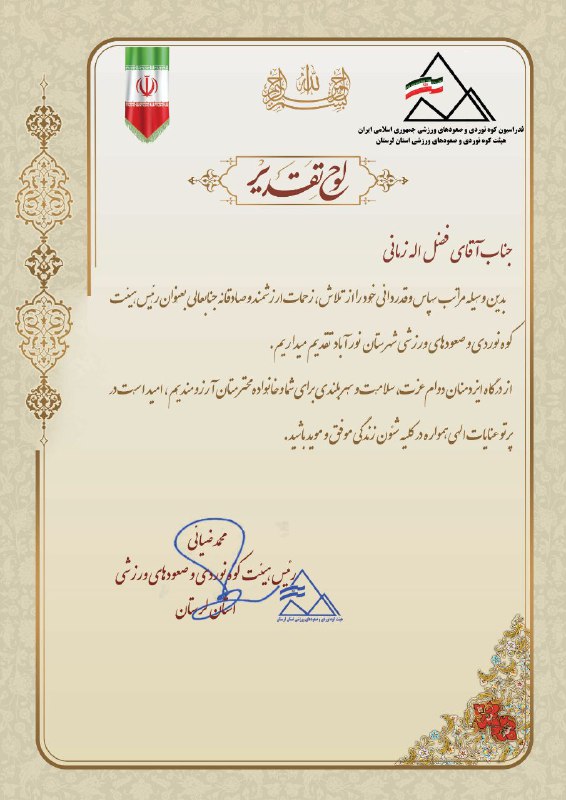 بسم الله الرحمن الرحیم
فدراسیون کوه نوردی و صعودهای ورزشی جمهوری اسلامی ایران
هیئت کوه نوردی و صعودهای ورزشی استان لرستان
لوح تقدیر
جناب آقای فضل اله زمانی
بدین وسیله مراتب سپاس و قدردانی خود را از تلاش، زحمات ارزشمند و صادقانه جنابعالی بعنوان رئیس هیئت
کوه نوردی و صعودهای ورزشی شهرستان نورآباد تقدیم میداریم.
از درگاه ایزد منان دوام عزت، سلامت و سربلندی برای شما و خانواده محترمتان آرزومندیم، امید است در
پرتو عنایات الهی همواره در کلیه شئون زندگی موفق و موید باشید.
محمد ضیائی
رئیس هیئت کوه نوردی و صعودهای ورزشی
استان لرستان
هیئت کوه نوردی و صعودهای ورزشی استان لرستان